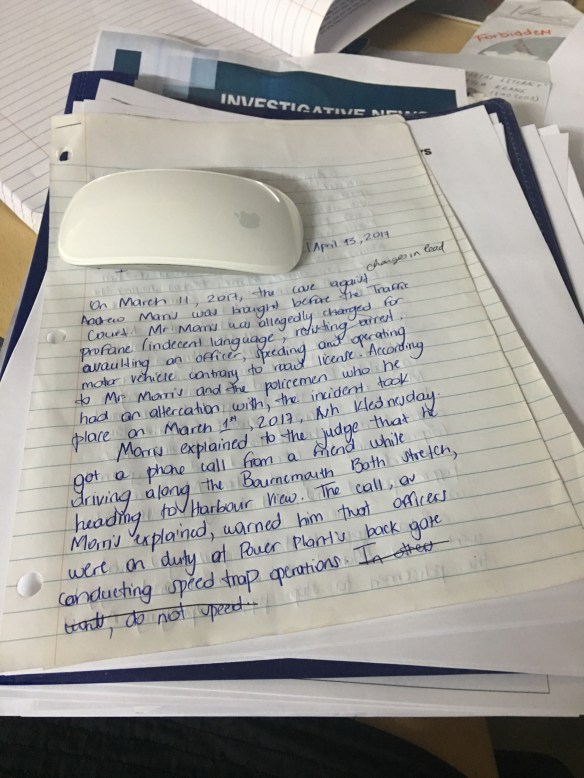 Forbidden
INVESTIGATIVE NEWS
April 13, 2017
changes in lead
On March 11, 2017, the case against
Andrew Morris was brought before the Traffic
Court. Mr Morris was allegedly charged for
profane (indecent language, resisting arrest,
assaulting an officer, speeding and operating
motor vehicle contrary to road license. According
to Mr Morris and the policemen who he
had an altercation with, the incident took
place on March 1st, 2017, Ash Wednesday
Morris explained to the judge that he
got a phone call from a friend while
driving along the Bournemouth Bath stretch,
heading to Harbour View. The call, as
Morris explained, warned him that officers
were on duty at Power Plant's back gate
conducting speed trap operations. In
do not speed.